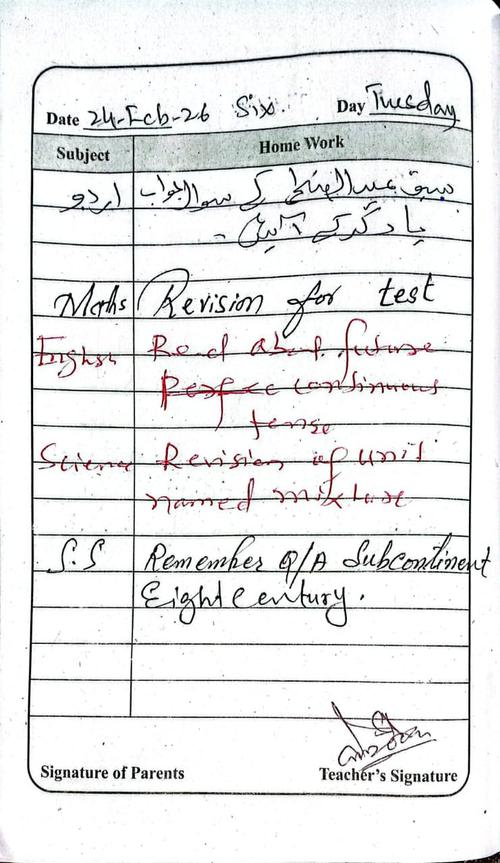 Date 24-Feb-26 Six. Day Tuesday
Subject Home Work
اردو سبق عیدالضحیٰ کے سوال جواب
یاد کرکے آئیں -
Maths Revision for test
English Read about future
Perfec continuous
tense
Science Revision of unit
named mixture
S.S Remember Q/A Subcontinent
Eight century.
Signature of Parents Teacher's Signature